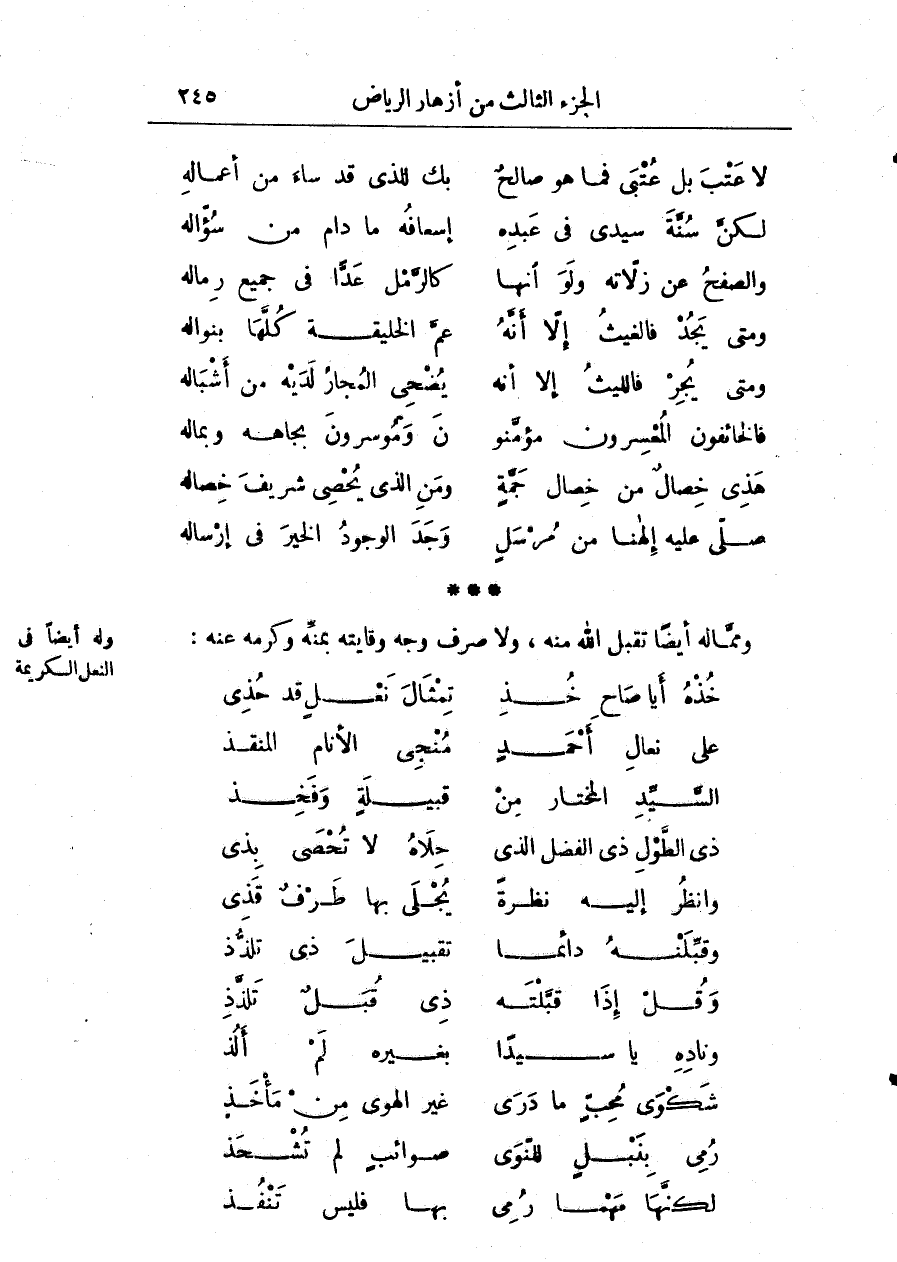 الجزء الثالث من أزهار الرياض ٢٤٥
لا عَتْبَ بل عُتْبَى فما هو صالحٌ بك للذى قد ساء من أعماله
لكنَّ سُنَّةَ سيدى فى عَبدِه إسعافُه ما دام من سُؤّاله
والصفحُ عن زلّاته ولَوَ أنها كالرَّمْل عَدًّا فى جميع رِماله
ومتى يَجُدْ فالغيثُ إلّا أَنَّهُ عمَّ الخليقة كُلَّهَا بنواله
ومتى يُجِرْ فالليثُ إلا أنه يُضْحِى المُجارُ لَدَيْه من أَشْبَاله
فالخائفون المُعْسِرون مؤمَّنو نَ وَمُوسرونَ بجاهه وبماله
هَذِى خِصالٌ من خِصال جَمَّةٍ ومَنِ الذى يُحْصِى شريفَ خِصاله
صلّى عليه إلهُنا من مُرْسَلٍ وَجَدَ الوجودُ الخيرَ فى إرْساله
***
ومما له أيضًا تقبل الله منه ، ولا صرف وجه وقايته بمنّه وكرمه عنه :
وله أيضاً فى
النعل الكريمة
خُذْهُ أَيا صَاحِ خُذِ تِمْثَالَ نَعْلٍ قد حُذِى
على نعالِ أَحْمَدٍ مُنْجِى الأنام المنقذ
السَّيِّدِ المختار مِنْ قبيلَةٍ وَفَخِذ
ذى الطَّوْلِ ذى الفضل الذى حِلَاهُ لا تُحْصَى بِذى
وانظُر إليه نظرةً يُجْلَى بها طَرْفٌ قَذِى
وقبِّلَنْهُ دائما تقبيلَ ذى تلذُّذ
وَقُلْ إذَا قبَّلْتَه ذِى قُبَلٌ تَلَذَّذِ
ونادِهِ يا سيدًا بغيره لَمْ أَلُذ
شَكْوَى مُحِبٍّ ما دَرَى غير الهوى مِنْ مَأْخَذٍ
رُمِى بِنَبْلٍ للنّوَى صوائبٍ لم تُشْحَذ
لكنَّهَا مَهْمَا رُمِى بها فليس تَنْفُذ